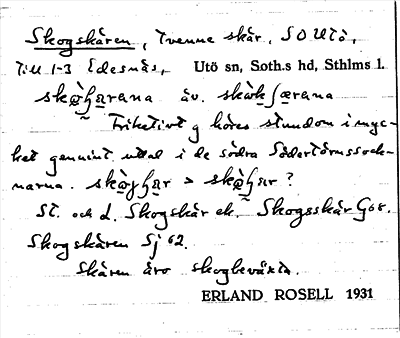 Skogskären, Tvenne skär, SO Utö,
till 1-3 Edesnäs, Utö sn, Soth.s hd, Sthlms l.
äv.
Frikativt g höres stundom i myc-
ket genuint uttal i de södra Södertörnssock-
narna.
St. och d. Skogskär ek. Skogsskär G68.
Skogskären Sj 62.
Skären äro skogbeväxta.
ERLAND ROSELL 1931